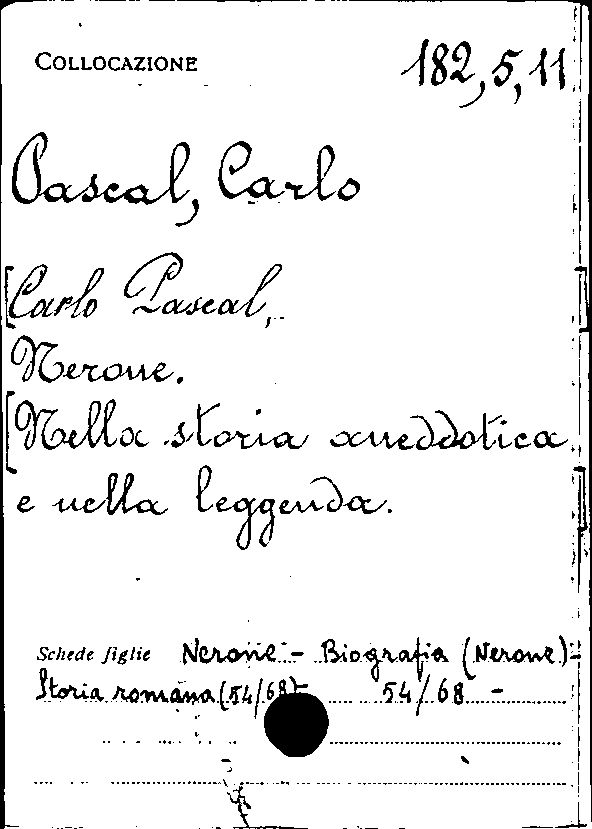 COLLOCAZIONE 182,5,11
Pascal, Carlo
[Carlo Pascal,]
Nerone.
[Nella storia aneddotica
e nella leggenda.]
Schede figlie Nerone - Biografia (Nerone) -
Storia romana (54/68) - 54/68 -